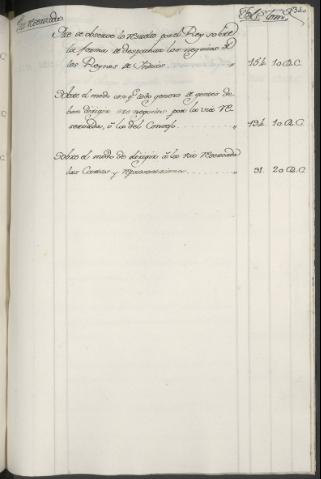 Via reservada Fol. Tom.
Que se observe lo resuelto por el Rey sobre
la forma de despachar los negocios de
los Reynos de Indias. 15.b. 1o A.C.
Sobre el modo con q.e toda genero de gentes de-
ben dirigir sus negocios por la via re-
servada, ô la del Consejo. 19.b. 1o A.C.
Sobre el modo de dirigir â la via reservada
las Cartas y representaciones. 31. 2o A.C.